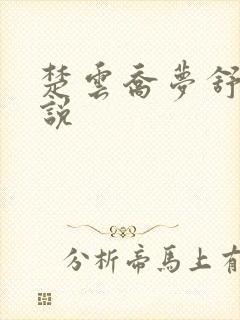 楚雲喬夢舒
說
分析帝馬上有